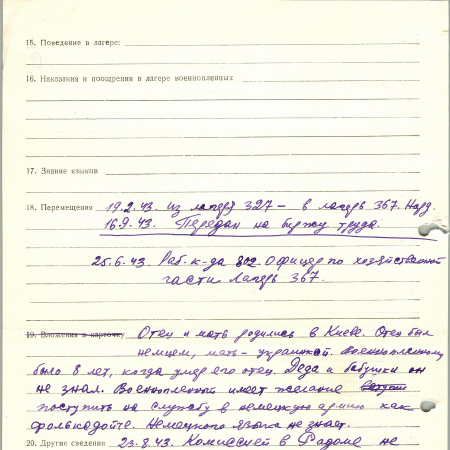 15. Поведение в лагере:
16. Наказания и поощрения в лагере военнопленных
17. Знание языков
18. Перемещения 19.2.43. Из лагеря 327 – в лагерь 367. Нард.
16.9.43. Передан на биржу труда.
25.6.43. Раб. к-да Офицер по хозяйственной
части. Лагерь 367.
19. Вложения в карточку Отец и мать родились в Киеве. Отец был
немцем, мать – украинкой. Военнопленному
было 8 лет, когда умер его отец. Деда и бабушки он
не знал. Военнопленный имеет желание
поступить на службу в немецкую армию как
фольксдойче. Немецкого языка не знает.
20. Другие сведения 23.8.43. Комиссией в Радоме не